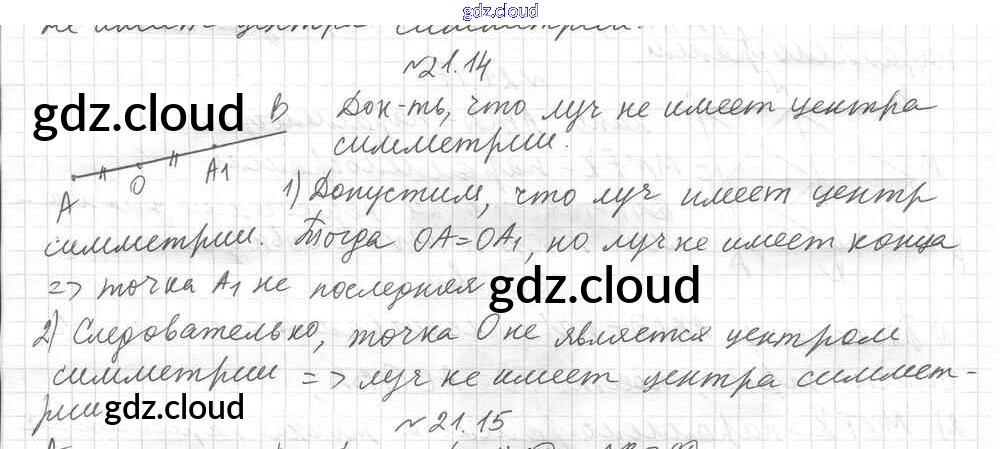 gdz.cloud
не имеет центра симметрии.
№21.14
gdz.cloud
B Док-ть, что луч не имеет центра
симметрии.
A O A1
1) Допустим, что луч имеет центр
симметрии. Тогда OA=OA1, но луч не имеет конца
=> точка A1 не последняя
gdz.cloud
2) Следовательно, точка O не является центром
симметрии => луч не имеет центра симмет-
рии
gdz.cloud
№21.15